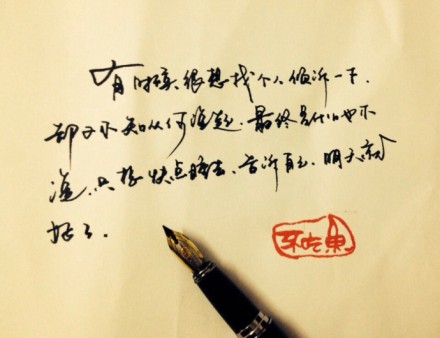 有时候,很想找个人倾诉一下,
却又不知从何说起,最终是什么也不
说,只想快点睡去,告诉自己,明天就
好了.